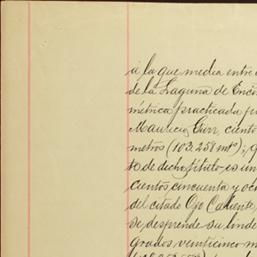 á la que media entre
de la Laguna de Enci
métrica practicada p
Mauricio Gun, ciento
metros (103.258 mts); q
to de dicho título es in
cientos cincuenta y oc
del citado Ojo Caliente,
se desprende su linde
grados, veinticinco m